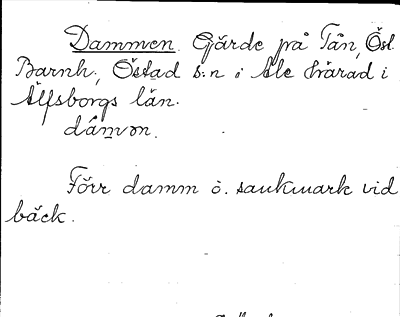 Dammen. Gärde på Tån, Öst.
Barnh., Östad s:n i Ale härad i
Älfsborgs län.
Förr damm o. sankmark vid
bäck.